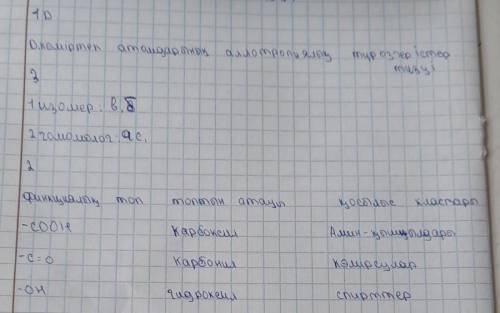 1 D
D. көміртек атомдарының аллотропиялық түрөзгерістер
түзуі
3
1 изомер: в, б
2 гомолог: а, с.
2
функциялық топ топтың атауы қосылыс кластары
-COOH карбоксил Амин-қышқылдары
-C=O карбонил көмірсулар
-OH гидроксил спирттер